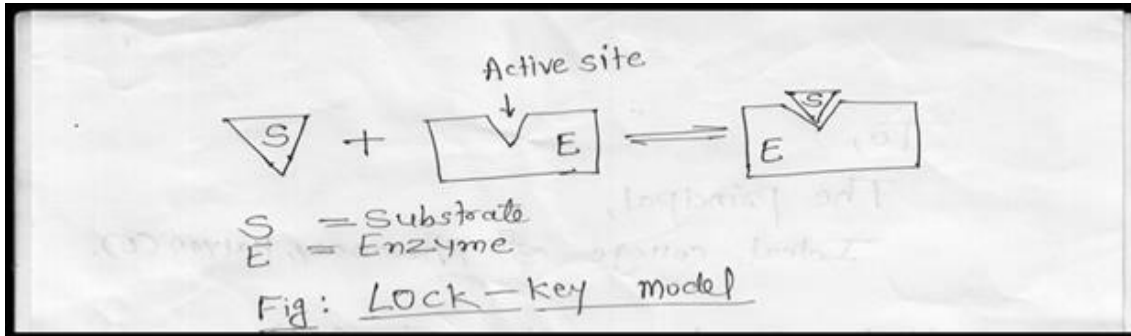 Active site
S + E ⇌ S E
S = Substrate
E = Enzyme
Fig: Lock-key model